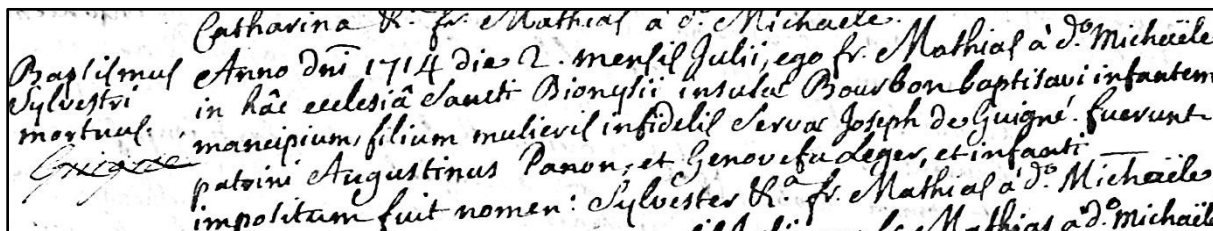 Catharina &.a fr. Mathias à d.o Michaële.
Baptismus
Sylvestri
mortuus.
Anno dnī 1714 die 2. mensis Julii, ego fr. Mathias à d.o Michaële
in hâc ecclesiâ Sancti Dionysii insulæ Bourbon baptisavi infantem
mancipium, filium mulieris infidelis servæ Joseph de Guigné. fuerunt
patrini Augustinus Panon, et Genovefa Leger, et infanti
impositum fuit nomen: Sylvester &.a fr. Mathias à d.o Michaële
Mathias à d.o Michaële